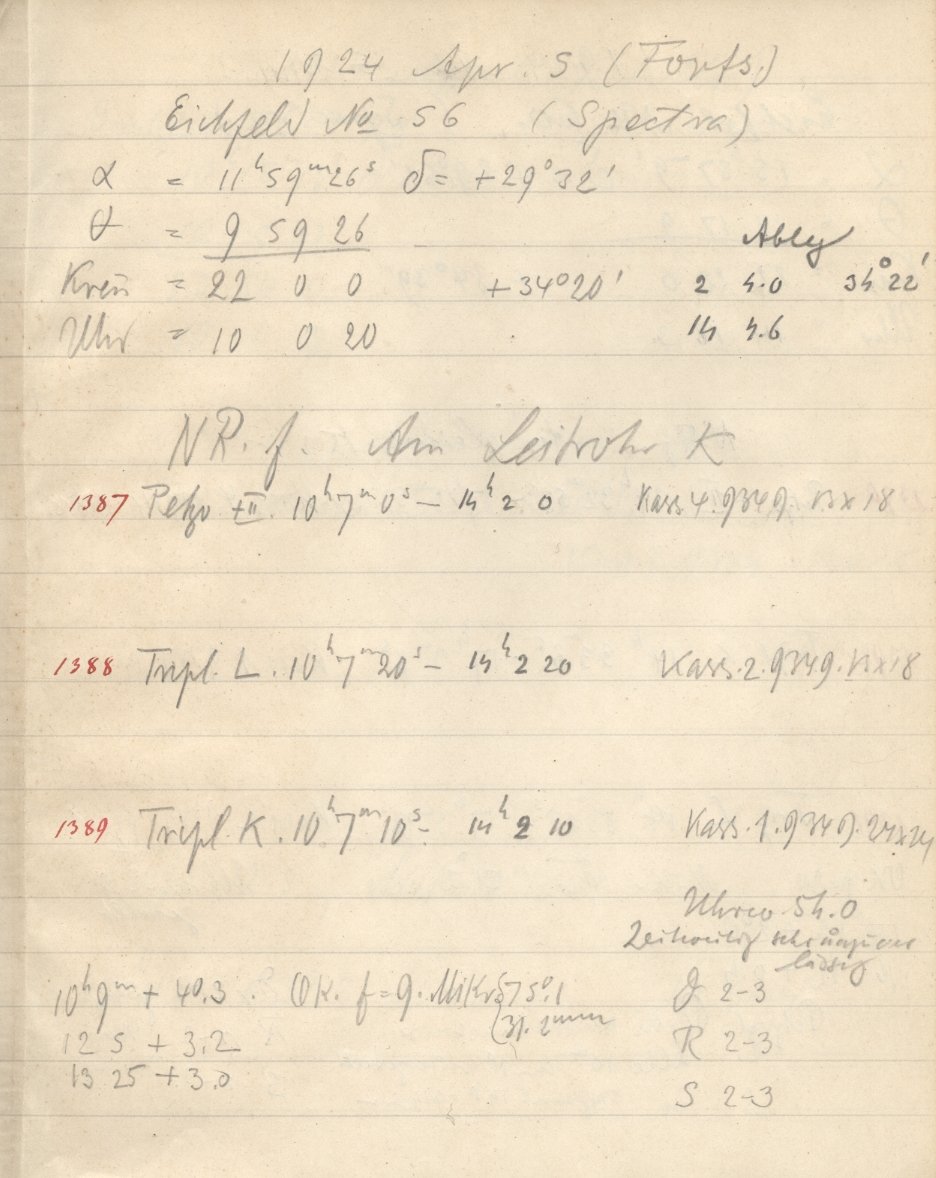 1924 Apr. 5 (Forts.)
Eichfeld No 56 (Spectra)
α = 11ʰ59ᵐ26ˢ δ = +29°32'
θ = 9 59 26
Ablg
Kreis = 22 0 0 +34°20' 2 4.0 34°22'
Uhr = 10 0 20 14 4.6
NR. f. Am Leitrohr K
1387 Petzv II. 10ʰ7ᵐ0ˢ – 14ʰ 2 0 Kass 4. 9349. 13x18
1388 Tripl. L. 10ʰ7ᵐ20ˢ – 14ʰ 2 20 Kass. 2. 9349. 13x18
1389 Tripl. K. 10ʰ7ᵐ10ˢ – 14ʰ 2 10 Kass. 1. 9349. 24x24
Uhrco 54.0
Zeitweilig sehr
lässig
10ʰ9ᵐ + 40.3 . OK. f = 9. Mikr 575°.1 J 2-3
12 5 + 3.2 R 2-3
13 25 + 3.0
S 2-3